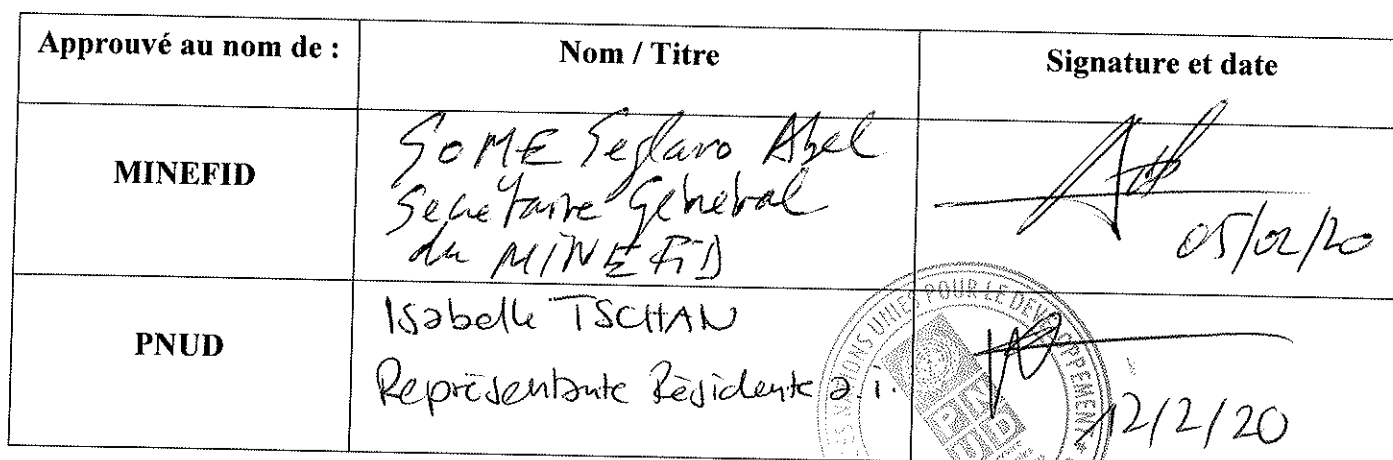 Approuvé au nom de : Nom / Titre Signature et date
MINEFID
SOME Seglaro Abel
Secrétaire Général
du MINEFID
05/02/20
PNUD
Isabelle TSCHAN
Représentante Résidente a.i.
NATIONS UNIES POUR LE DEVELOPPEMENT
PNUD
12/2/20